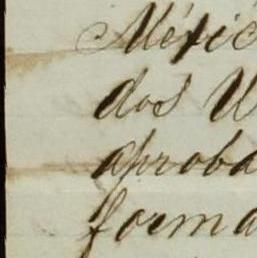 Méxic
dos U
aproba
forma